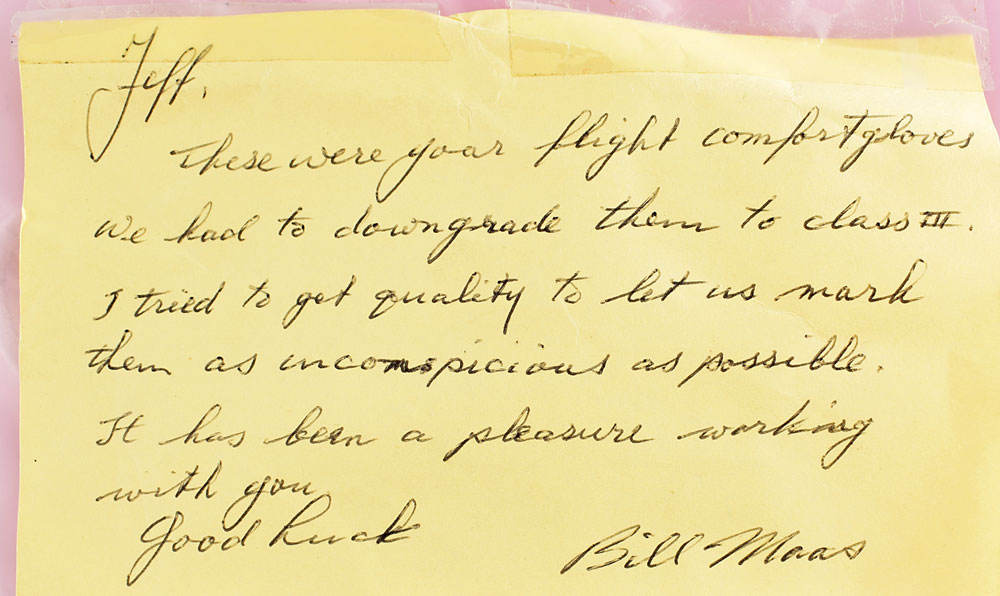 Jeff,
These were your flight comfort gloves
We had to downgrade them to class III.
I tried to get quality to let us mark
them as inconspicious as possible.
It has been a pleasure working
with you
Good Luck
Bill Maas